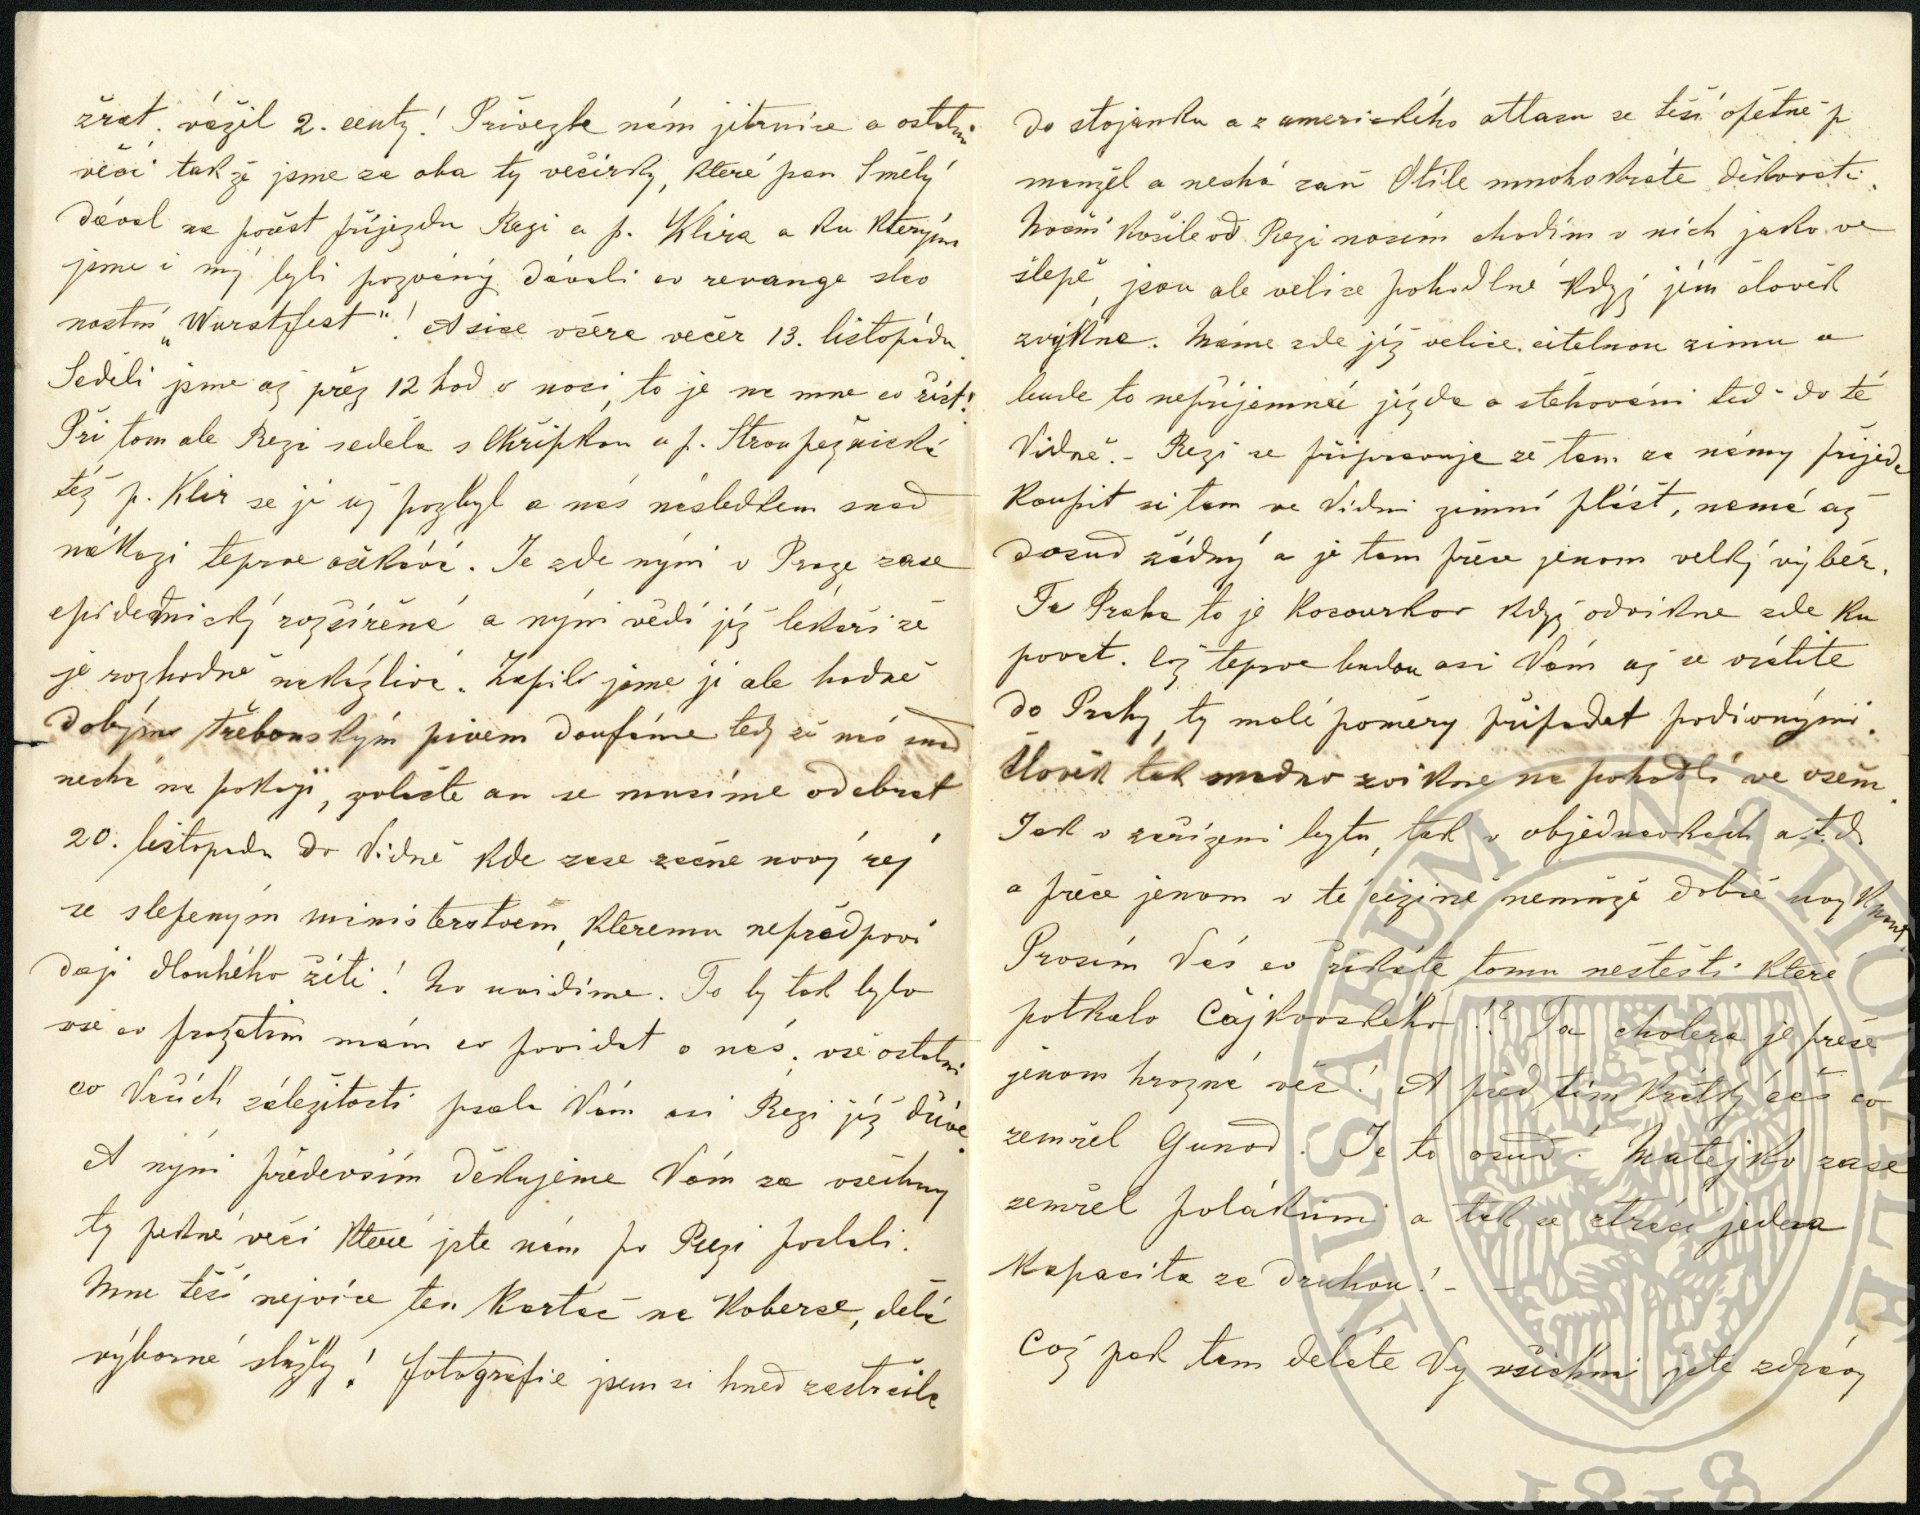 žrat. vážil 2. centy! Přivezla nám jitrnice a ostatní
věci takže jsme za oba ty večírky, které pan Smělý
dával na počest příjezdu Rezi a p. Klira a ku kterým
jsme i my byli pozvány dávali co revange slav
nostní „Wurstfest"! A sice včera večer 13. listopadu.
Seděli jsme až přez 12 hod v noci, to je na mne co říct!
Při tom ale Rezi seděla s Chřipkou a p. Stroupežnická
též p. Klir se jí už pozbyl a nás následkem snad
nákazi teprve očekává. Je zde nýni v Praze zase
epidemický rozšířená a nýni vědí již lékaři že
je rozhodně nakažlivá. Zapili jsme ji ale hodně
dobrým třeboňským pivem doufáme tedy že nás snad
nechá na pokoji, zvláště an se musíme odebrat
20. listopadu do Vídně kde zase začne nový rej
se slepeným ministerstvem, kteremu nepředpoví
dají dlouhého žití! No uvidíme. To by tak bylo
vše co prozatím mám co povídat o nás, vše ostatní
co Vašich záležitosti psala Vám asi Rezi již dříve
A nýni především děkujeme Vám za všechny
ty pěkné věci které jste nám po Rezi poslali.
Mne těší nejvíce ten kartáč na koberce, dělá
výborné služby! fotografie jsem si hned zastrčila
do stojánku a z amerického attasu se těší opětně p
manžel a nechá zaň Otile mnohokráte děkovati.
Noční košile od Rezi nosím chodím v nich jako ve
šlepě, jsou ale velice pohodlné když jim člověk
zvykne. Máme zde již velice citelnou zimu a
bude to nepříjemná jízda a stěhování teď do té
Vídně. - Rezi se připravuje že tam za námy přijede
koupit si tam ve Vídni zimní plášť, nemá až
dosud žádný a je tam přece jenom velký výběr.
Ta Praha to je Kocourkov když odvikne zde ku
povat. Což teprve budou asi Vám až se vrátíte
do Prahy, ty malé poměry připadat podivnými.
Člověk tak snadno zvikne na pohodlí ve všem.
Jak v zařízeni bytu, tak v objednávkách a t. d.
a přece jenom v té cizině nemůže dobře uvyknout.
Prosím Vás co říkáte tomu neštěstí které
potkalo Čajkovského!? Ta cholera je přece
jenom hrozná věc! A před tím krátký čas co
zemřel Gunod. Je to osud! Matejko zase
zemřel polákům a tak se ztrácí jedna
kapacita za druhou! - -
Což pak tam děláte Vy všichni jste zdrávy
MUSAEUM NATIONALE
1818